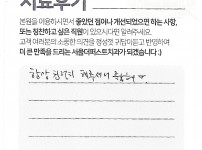 치료후기
본원을 이용하시면서 좋았던 점이나 개선되었으면 하는 사항,
또는 칭찬하고 싶은 직원이 있으시다면 알려주세요.
고객 여러분의 소중한 의견을 정성껏 귀담아듣고 반영하여
더 큰 만족을 드리는 서울더퍼스트치과가 되겠습니다 :)
항상 친절히